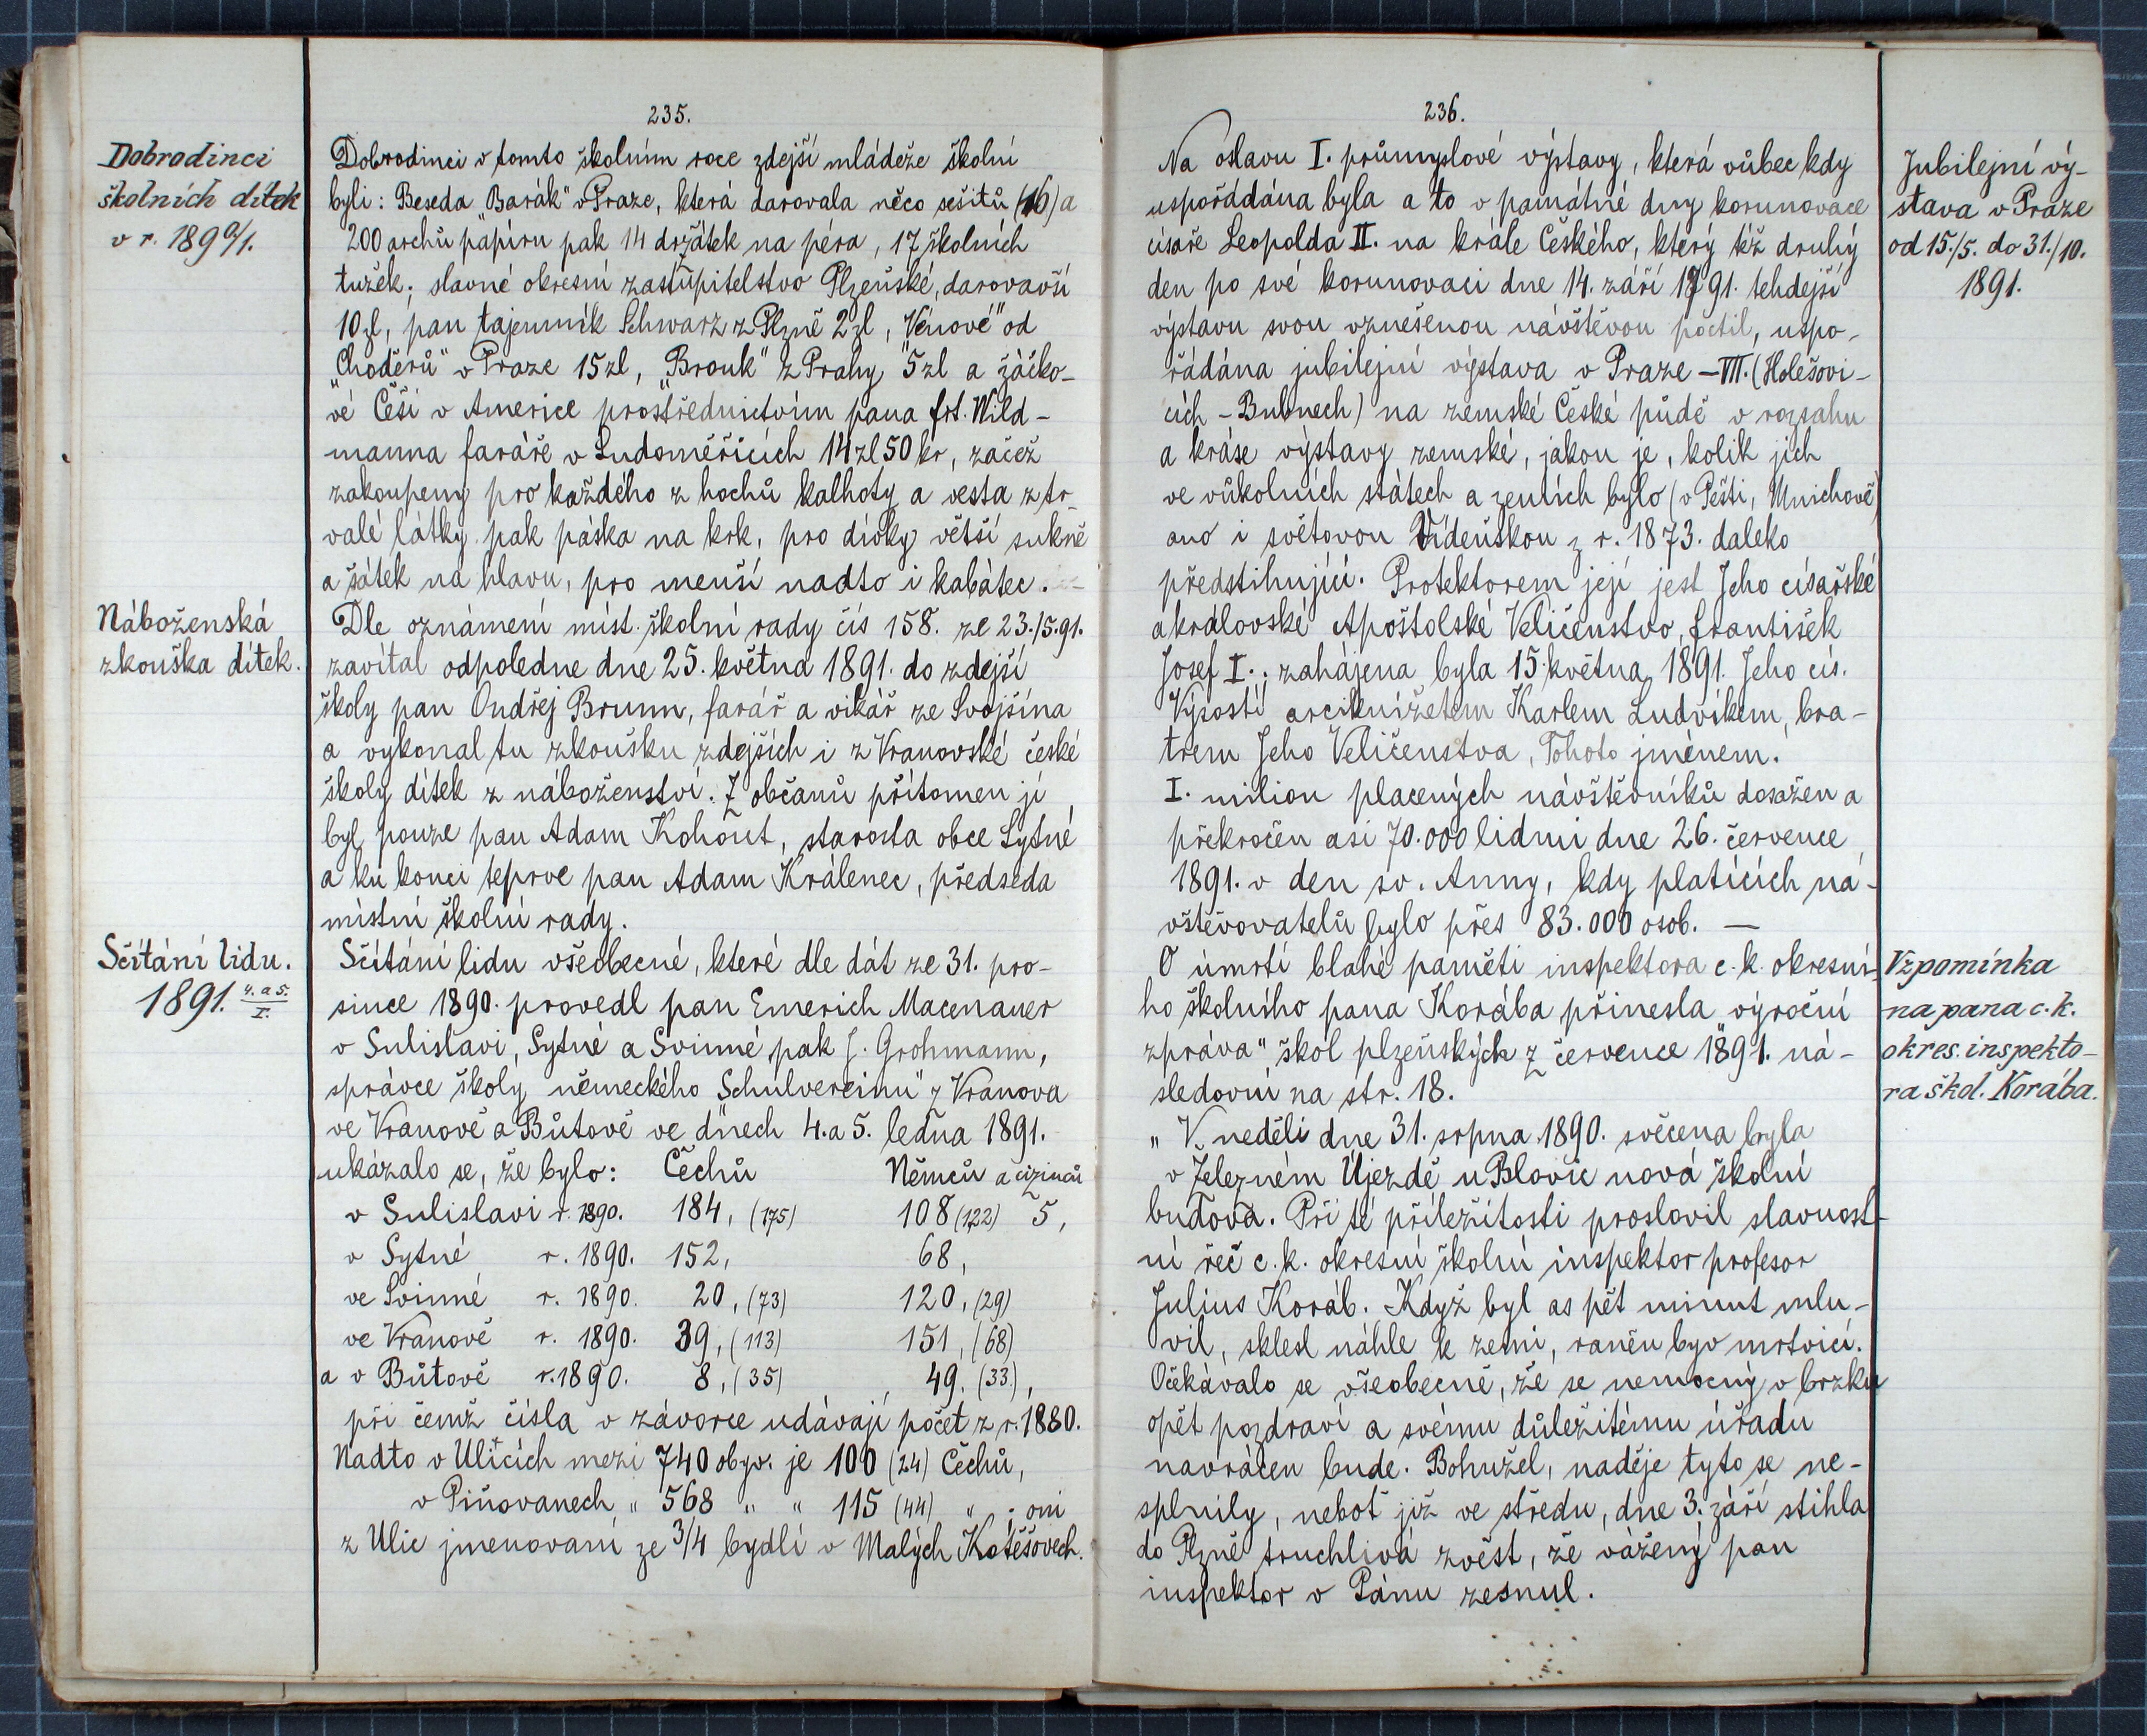 235.
Dobrodinci
školních dítek
v r. 1890/1.
Dobrodinci v tomto školním roce zdejší mládeže školní
byli: Beseda „Barák" v Praze, která darovala něco sešitů (16) a
200 archů papíru pak 14 držátek na péra, 17 školních
tužek; slavné okresní zastupitelstvo Plzeňské, darovavší
10 zl, pan tajemník Schwarz z Plzně 2 zl, „Venové" od
„Choděrů" v Praze 15 zl, „Brouk" z Prahy 5 zl a žáčko-
vé Češi v Americe prostřednictvím pana frt. Wild-
manna faráře v Ludoměřicích 14 zl 50 kr, začež
zakoupeny pro každého z hochů kalhoty a vesta z tr-
valé látky pak páska na krk, pro dívky větší sukně
a šátek na hlavu, pro menší nadto i kabátec.
Náboženská
zkouška dítek.
Dle oznámení míst. školní rady čís 158. ze 23./5.91.
zavítal odpoledne dne 25. května 1891. do zdejší
školy pan Ondřej Brunn, farář a vikář ze Svojšína
a vykonal tu zkoušku zdejších i z Vranovské české
školy dítek z náboženství. Z občanů přítomen jí
byl pouze pan Adam Kohout, starosta obce Sytné
a ku konci teprve pan Adam Králenec, předseda
místní školní rady.
Sčítání lidu.
1891. 4. a 5./I.
Sčítání lidu všeobecné, které dle dát ze 31. pro-
since 1890. provedl pan Emerich Macenauer
v Sulislavi, Sytné a Svinné pak J. Grohmann,
správce školy německého „Schulvereinu" z Vranova
ve Vranově a Bůtově ve dnech 4. a 5. ledna 1891.
ukázalo se, že bylo: Čechů Němců a cizinců
v Sulislavi r. 1890. 184, (175) 108 (122) 5,
v Sytné r. 1890. 152, 68,
ve Svinné r. 1890. 20, (73) 120, (29)
ve Vranově r. 1890. 39, (113) 151, (68)
a v Bůtově r. 1890. 8, (35) 49, (33.),
při čemž čísla v závorce udávají počet z r. 1880.
Nadto v Ulicích mezi 740 obyv. je 100 (24) Čechů,
v Piňovanech „ 568 „ „ 115 (44) „ ; oni
z Ulic jmenovaní ze 3/4 bydlí v Malých Kotěšovech.
236.
Na oslavu I. průmyslové výstavy, která vůbec kdy
uspořádána byla a to v památné dny korunovace
císaře Leopolda II. na krále Českého, který též druhý
den po své korunovaci dne 14. září 1791. tehdejší
výstavu svou vznešenou návštěvou poctil, uspo-
řádána jubilejní výstava v Praze – VII. (Holešovi-
cích – Bubnech) na zemské České půdě v rozsahu
a kráse výstavy zemské, jakou je, kolik jich
ve vůkolních státech a zemích bylo (v Pešti, Mnichově)
ano i světovou Vídeňskou z r. 1873. daleko
předstihující. Protektorem její jest Jeho císařské
a královské Apoštolské Veličenstvo, František
Josef I.; zahájena byla 15. května 1891. Jeho cís.
Výsostí arciknížetem Karlem Ludvíkem, bra-
trem Jeho Veličenstva, Tohoto jménem.
I. milion placených návštěvníků dosažen a
překročen asi 70.000 lidmi dne 26. července
1891. v den sv. Anny, kdy platících ná-
vštěvovatelů bylo přes 83.000 osob. —
Jubilejní vý-
stava v Praze
od 15./5. do 31./10.
1891.
O úmrtí blahé paměti inspektora c. k. okresní-
ho školního pana Korába přinesla „výroční
zpráva" škol plzeňských z července 1891. ná-
sledovní na str. 18.
„V neděli dne 31. srpna 1890. svěcena byla
v Železném Újezdě u Blovic nová školní
budova. Při té příležitosti proslovil slavnost-
ní řeč c. k. okresní školní inspektor profesor
Julius Koráb. Když byl as pět minut mlu-
vil, sklesl náhle k zemi, raněn byv mrtvicí.
Očekávalo se všeobecně, že se nemocný v brzku
opět pozdraví a svému důležitému úřadu
navrácen bude. Bohužel, naděje tyto se ne-
splnily, neboť již ve středu, dne 3. září stihla
do Plzně truchlivá zvěst, že vážený pan
inspektor v Pánu zesnul.
Vzpomínka
na pana c. k.
okres. inspekto-
ra škol. Korába.